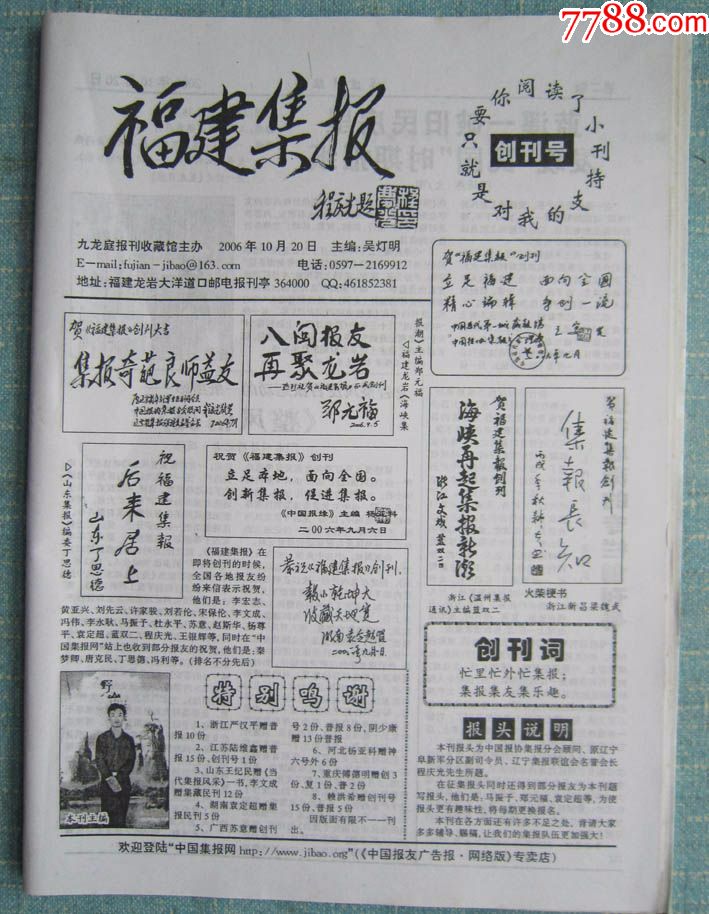 7788.com
中国收藏热线
福建集报
你阅读了小刊
创刊号
要只就是对我的支持
九龙庭报刊收藏馆主办 2006年10月20日 主编:吴灯明
E-mail:fujian-jibao@163.com 电话:0597-2169912
地址:福建龙岩大洋道口邮电报刊亭 364000 QQ:461852381
贺“福建集报”创刊
立足福建 面向全国
精心编辑 争创一流
贺《福建集报》创刊大吉
集报奇葩良师益友
八闽报友
再聚龙岩
郑元福
2006.9.5
▷《福建龙岩《海峡集
报潮》主编郑元福
贺福建集报创刊
海峡再起集报新潮
贺福建集报创刊
集報長知
浙江《温州集报
通讯》主编蓝双二
火柴梗书
浙江新昌梁魏武
▷《山东集报》编委丁思德
祝福建集报
后来居上
山东丁思德
祝贺《福建集报》创刊
立足本地,面向全国。
创新集报,促进集报。
《中国报缘》主编 杨亚科
二00六年九月六日
恭祝《福建集报》创刊
报小乾坤大
收藏天地宽
湖南袁定超贺
《福建集报》在
即将创刊的时候,
全国各地报友纷
纷来信表示祝贺,
他们是:李宏志、
黄亚兴、刘先云、许家骏、刘若伦、宋保伦、李文成、
冯伟、李永耿、马振子、杜水平、苏意、赵斯华、杨尊
平、袁定超、蓝双二、程庆光、王银辉等,同时在“中
国集报网”站上也收到部分报友的祝贺,他们是:秦
梦卿、唐克民、丁思德、冯利等。(排名不分先后)
野山
本刊主编
特别鸣谢
1、浙江严汉平赠普
报10份
2、江苏陆维鑫赠普
报15份、创刊号1份
3、山东王纪民赠《当
代集报风采》一书,李文成
赠集藏民刊12份
4、湖南袁定超赠集
报民刊5份
5、广西苏意赠创刊
号2份、普报8份、阴少康
赠13份普报
6、河北杨亚科赠神
六号外6份
7、重庆傅德明赠创3
份、复1份、普16份
8、赖洪希赠创刊号
15份、普报5份
因版面有限不一一刊
出。
创刊词
忙里忙外忙集报;
集报集友集乐趣。
报头说明
本刊报头为中国报协集报分会顾问、原辽宁
阜新军分区副司令员、辽宁集报联谊会名誉会长
程庆光先生所题。
在征集报头同时还得到部分报友为本刊题
写报头,他们是:马振子、郑元福、袁定超等,为使
报头更有趣味性,将每期更换报名。
本刊在各方面还有许多不足之处、肯请大家
多多辅导、赐稿,让我们的集报队伍更加强大!
欢迎登陆“中国集报网http://www.jibao.org”(《中国报友广告报·网络版》专卖店)